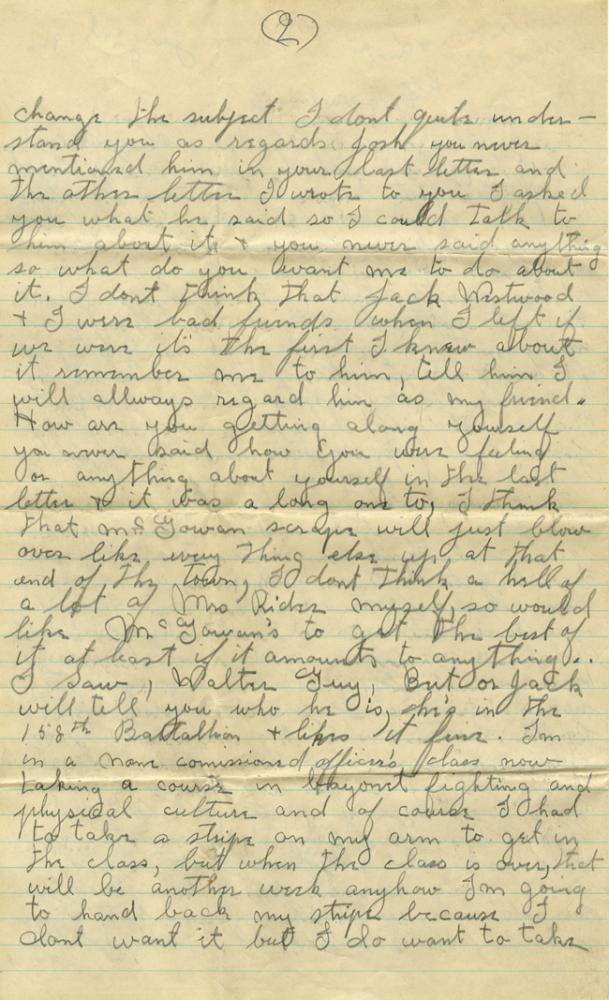 (2)
change the subject I dont quite under-
stand you as regards Josh you never
mentioned him in your last letter and
the other letter I wrote to you I asked
you what he said so I could talk to
him about it, & you never said anything
so what do you want me to do about
it. I dont think that Jack Westwood
& I were bad friends when I left if
we were it's the first I knew about
it remember me to him, tell him I
will allways regard him as my friend.
How are you getting along yourself
you never said how you were feeling
or anything about yourself in the last
letter & it was a long one to, I think
that McGowan scrape will just blow
over like every thing else up at that
end of the town, I dont think a hell of
a lot of Mrs Rider myself, so would
like McGowan's to get the best of
it at least if it amounts to anything..
I saw, Walter Guy, Bert or Jack
will tell you who he is, he's in the
158th Battallion & likes it fine. I'm
in a non comissioned officers class now
taking a course in bayonet fighting and
physical culture and of course I had
to take a stripe on my arm to get in
the class, but when the class is over, that
will be another week anyhow I'm going
to hand back my stripe because I
dont want it but I do want to take